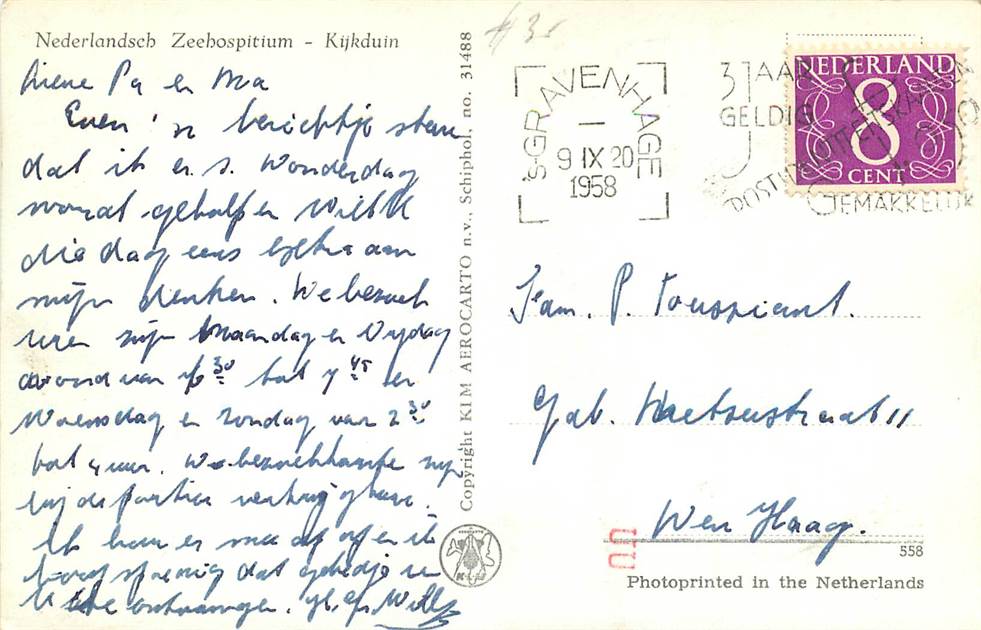 Nederlandsch Zeehospitium - Kijkduin
Lieve Pa en Ma
Even 'n berichtje
dat ik a.s. Donderdag
wordt geholpen Wilt U
die dag eens extra aan
mijn denken. De bezoek
uren zijn Maandag en Vrijdag
avond van 6 30 tot 7 45 en
Woensdag en Zondag van 2 30
tot 4 uur. De bezoekkaarten zijn
bij de portier verkrijgbaar.
Ik
dat
U ontvangen.
Copyright KIM AEROCARTO n.v., Schiphol. no. 31488
#3-
'S-GRAVENHAGE
9 IX 20
1958
3 JAAR
GELDIG
GEMAKKELIJK
NEDERLAND
8
CENT
Fam. P. Toussiant.
Gab. Metsustraat 11
Den Haag.
558
Photoprinted in the Netherlands